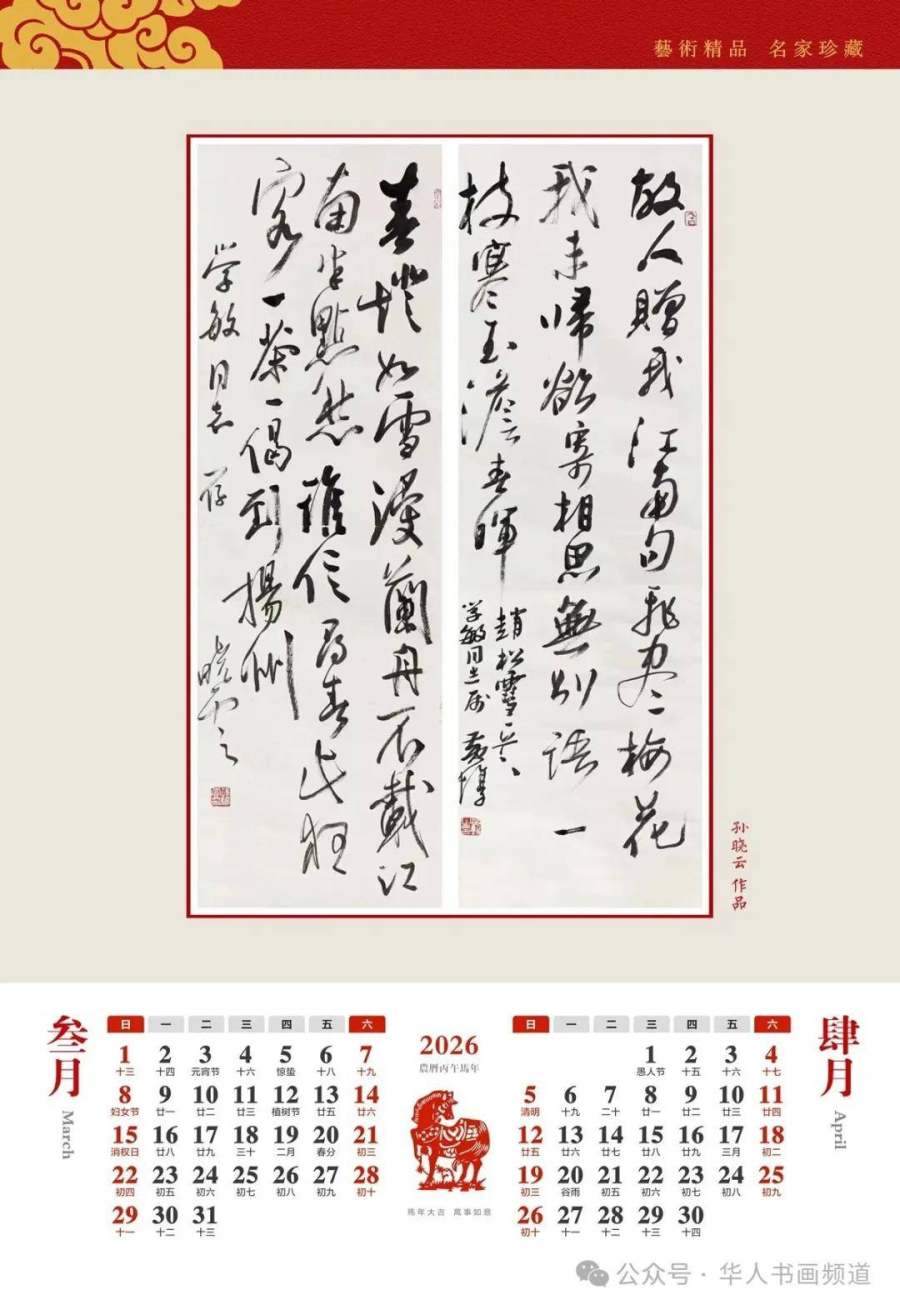 藝術精品 名家珍藏
故人贈我江南句飛盡梅花
我未歸欲寄相思無別語一
枝寒玉澹春暉
趙松雪
学敏同志属 黄惇
春燈如雪浸蘭舟不載江
南半點愁誰信尋春此狂
客一茶一偈到揚州
学敏同志存
晓云
孙晓云 作品
叁月
March
日 一 二 三 四 五 六
1 2 3 4 5 6 7
十三 十四 元宵节 十六 惊蛰 十八 十九
8 9 10 11 12 13 14
妇女节 廿一 廿二 廿三 植树节 廿五 廿六
15 16 17 18 19 20 21
消权日 廿八 廿九 三十 二月 春分 初三
22 23 24 25 26 27 28
初四 初五 初六 初七 初八 初九 初十
29 30 31
十一 十二 十三
2026
農曆丙午馬年
馬年大吉 萬事如意
日 一 二 三 四 五 六
1 2 3 4
愚人节 十五 十六 十七
5 6 7 8 9 10 11
清明 十九 二十 廿一 廿二 廿三 廿四
12 13 14 15 16 17 18
廿五 廿六 廿七 廿八 廿九 三月 初二
19 20 21 22 23 24 25
初三 谷雨 初五 初六 初七 初八 初九
26 27 28 29 30
初十 十一 十二 十三 十四
肆月
April
公众号 · 华人书画频道